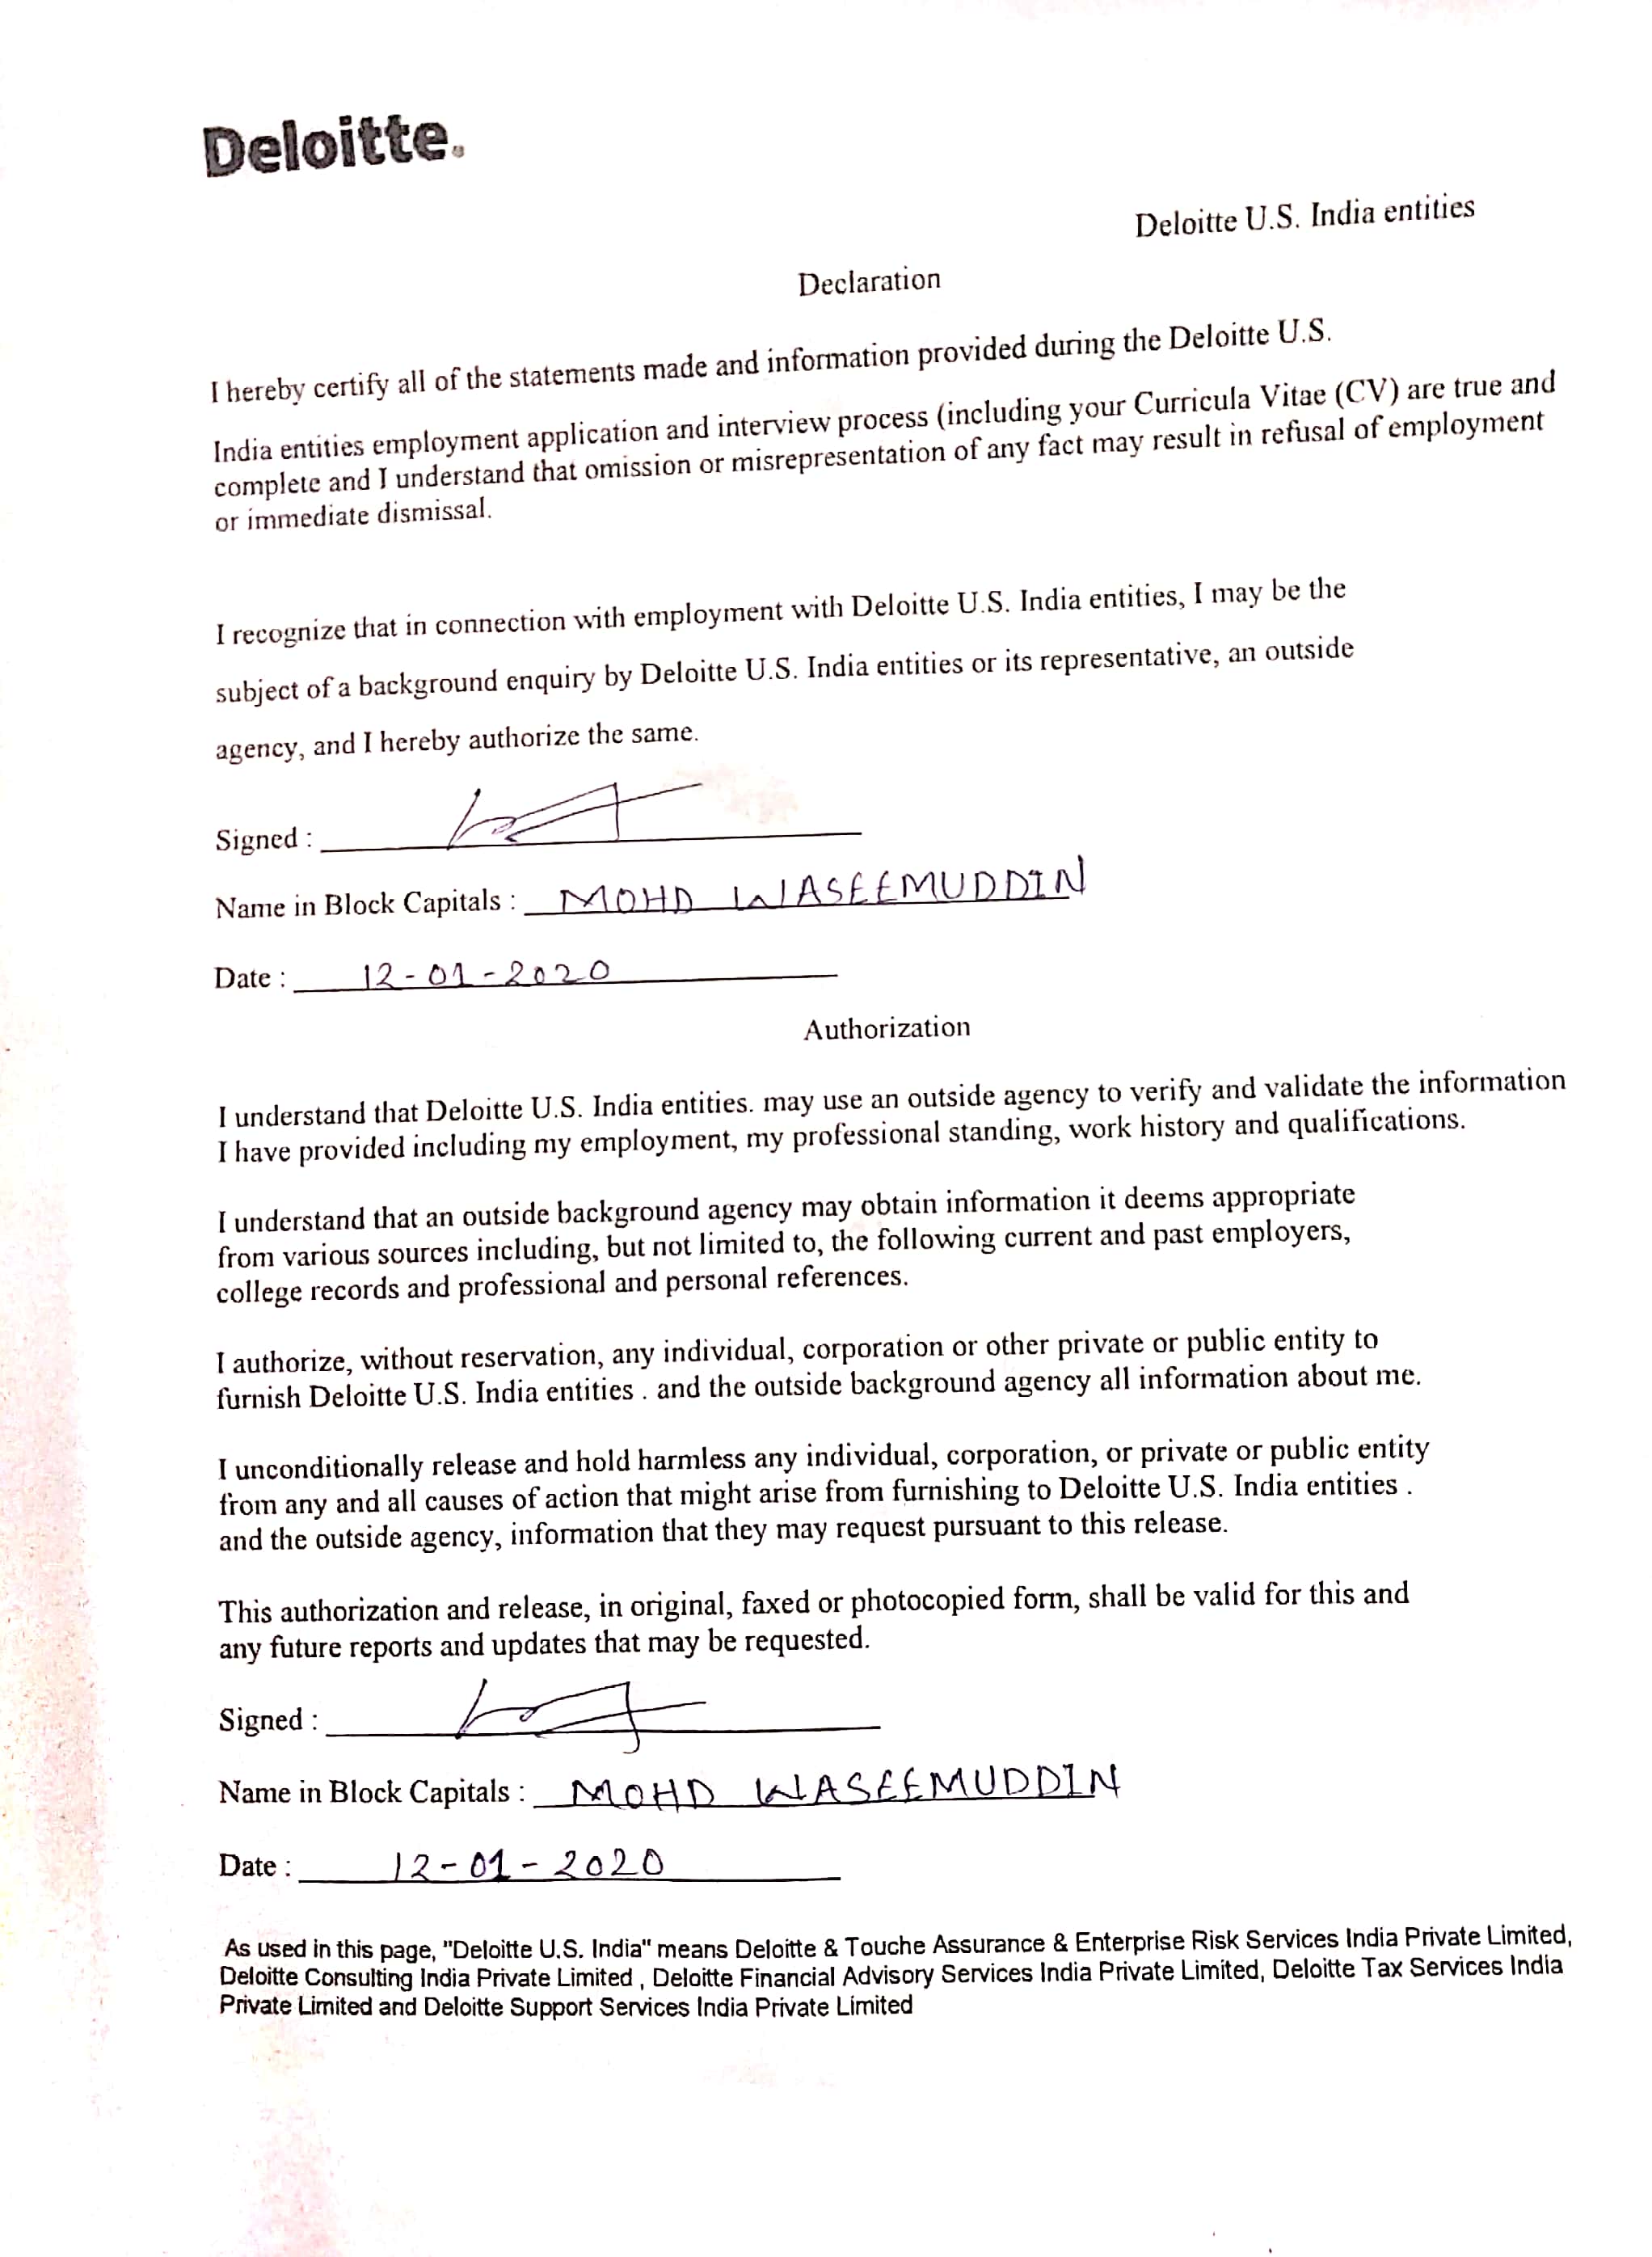 Deloitte.
Deloitte U.S. India entities
Declaration
I hereby certify all of the statements made and information provided during the Deloitte U.S.
India entities employment application and interview process (including your Curricula Vitae (CV) are true and
complete and I understand that omission or misrepresentation of any fact may result in refusal of employment
or immediate dismissal.
I recognize that in connection with employment with Deloitte U.S. India entities, I may be the
subject of a background enquiry by Deloitte U.S. India entities or its representative, an outside
agency, and I hereby authorize the same.
Signed :
Name in Block Capitals : MOHD WASEEMUDDIN
Date : 12-01-2020
Authorization
I understand that Deloitte U.S. India entities. may use an outside agency to verify and validate the information
I have provided including my employment, my professional standing, work history and qualifications.
I understand that an outside background agency may obtain information it deems appropriate
from various sources including, but not limited to, the following current and past employers,
college records and professional and personal references.
I authorize, without reservation, any individual, corporation or other private or public entity to
furnish Deloitte U.S. India entities . and the outside background agency all information about me.
I unconditionally release and hold harmless any individual, corporation, or private or public entity
from any and all causes of action that might arise from furnishing to Deloitte U.S. India entities .
and the outside agency, information that they may request pursuant to this release.
This authorization and release, in original, faxed or photocopied form, shall be valid for this and
any future reports and updates that may be requested.
Signed :
Name in Block Capitals : MOHD WASEEMUDDIN
Date : 12-01-2020
As used in this page, "Deloitte U.S. India" means Deloitte & Touche Assurance & Enterprise Risk Services India Private Limited,
Deloitte Consulting India Private Limited , Deloitte Financial Advisory Services India Private Limited, Deloitte Tax Services India
Private Limited and Deloitte Support Services India Private Limited